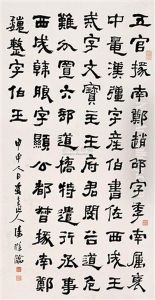 五官掾南鄭趙邵字季南屬褒
中晁漢彊字產伯書佐西成王
戒字文寶主王府君閔谷道危
難分置六部道橋特遣行丞事
西成韓朖字顯公都督掾南鄭
魏整字伯王